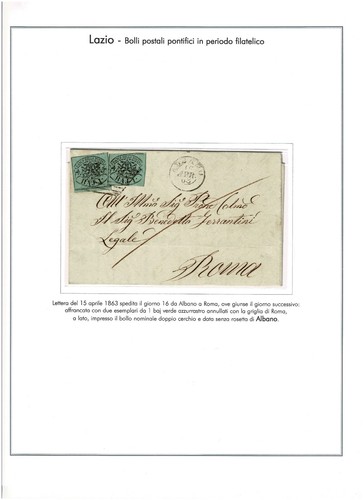 Lazio - Bolli postali pontifici in periodo filatelico
Sig
Al Sig Benedetto Ferrantini
Legale
Roma
Lettera del 15 aprile 1863 spedita il giorno 16 da Albano a Roma, ove giunse il giorno successivo:
affrancata con due esemplari da 1 baj verde azzurrastro annullati con la griglia di Roma,
a lato, impresso il bollo nominale doppio cerchio e data senza rosetta di Albano.